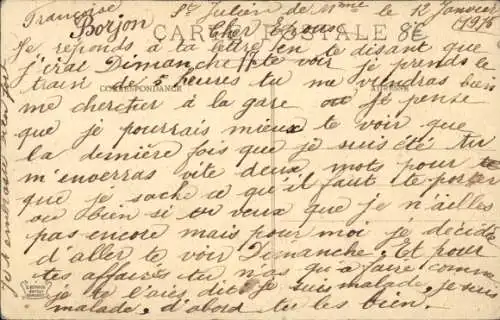 Française St Julien de Mme le 12 Janvier 1915
Borjon Cher Epoux
CARTE POSTALE 8E
Je réponds à ta lettre en te disant que
j'irai Dimanche te voir je prends le
train de 5 heures tu me viendras bien
CORRESPONDANCE ADRESSE
me chercher à la gare je pense
que je pourrais mieux te voir que
la dernière fois que je suis été tu
m'enverras vite deux mots pour
que je sache ce qu'il faut te porter
bien si tu veux que je n'ailles
pas encore mais pour moi je décide
d'aller te voir Dimanche. Et pour
tes affaires tu n'as qu'à faire comme
je te l'ais dit je suis malade, je suis
malade, d'abord tu les bien.
Je t'embrasse bien fort